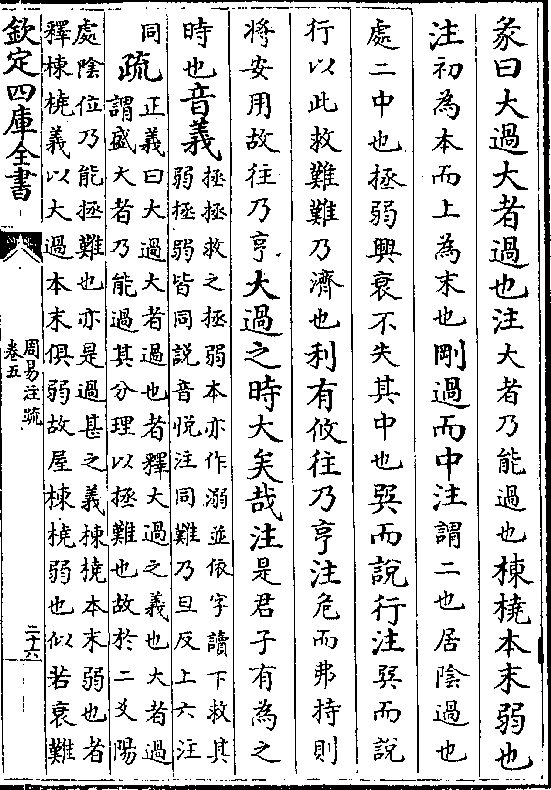 彖曰大過大者過也注大者乃能過也棟橈本末弱也
注初為本而上為末也剛過而中注謂二也居陰過也
處二中也拯弱興衰不失其中也巽而說行注巽而說
行以此救難難乃濟也利有攸往乃亨注危而弗持則
將安用故往乃亨大過之時大矣哉注是君子有為之
時也音義拯拯救之拯弱本亦作溺並依字讀下救其
弱拯弱皆同說音悅注同難乃旦反上六注
同疏正義曰大過大者過也者釋大過之義也大者過
謂盛大者乃能過其分理以拯難也故於二爻陽
處陰位乃能拯難也亦是過甚之義棟橈本末弱也者
釋棟橈義以大過本末俱弱故屋棟橈弱也似若衰難
欽定四庫全書
周易注疏
卷五
二十六